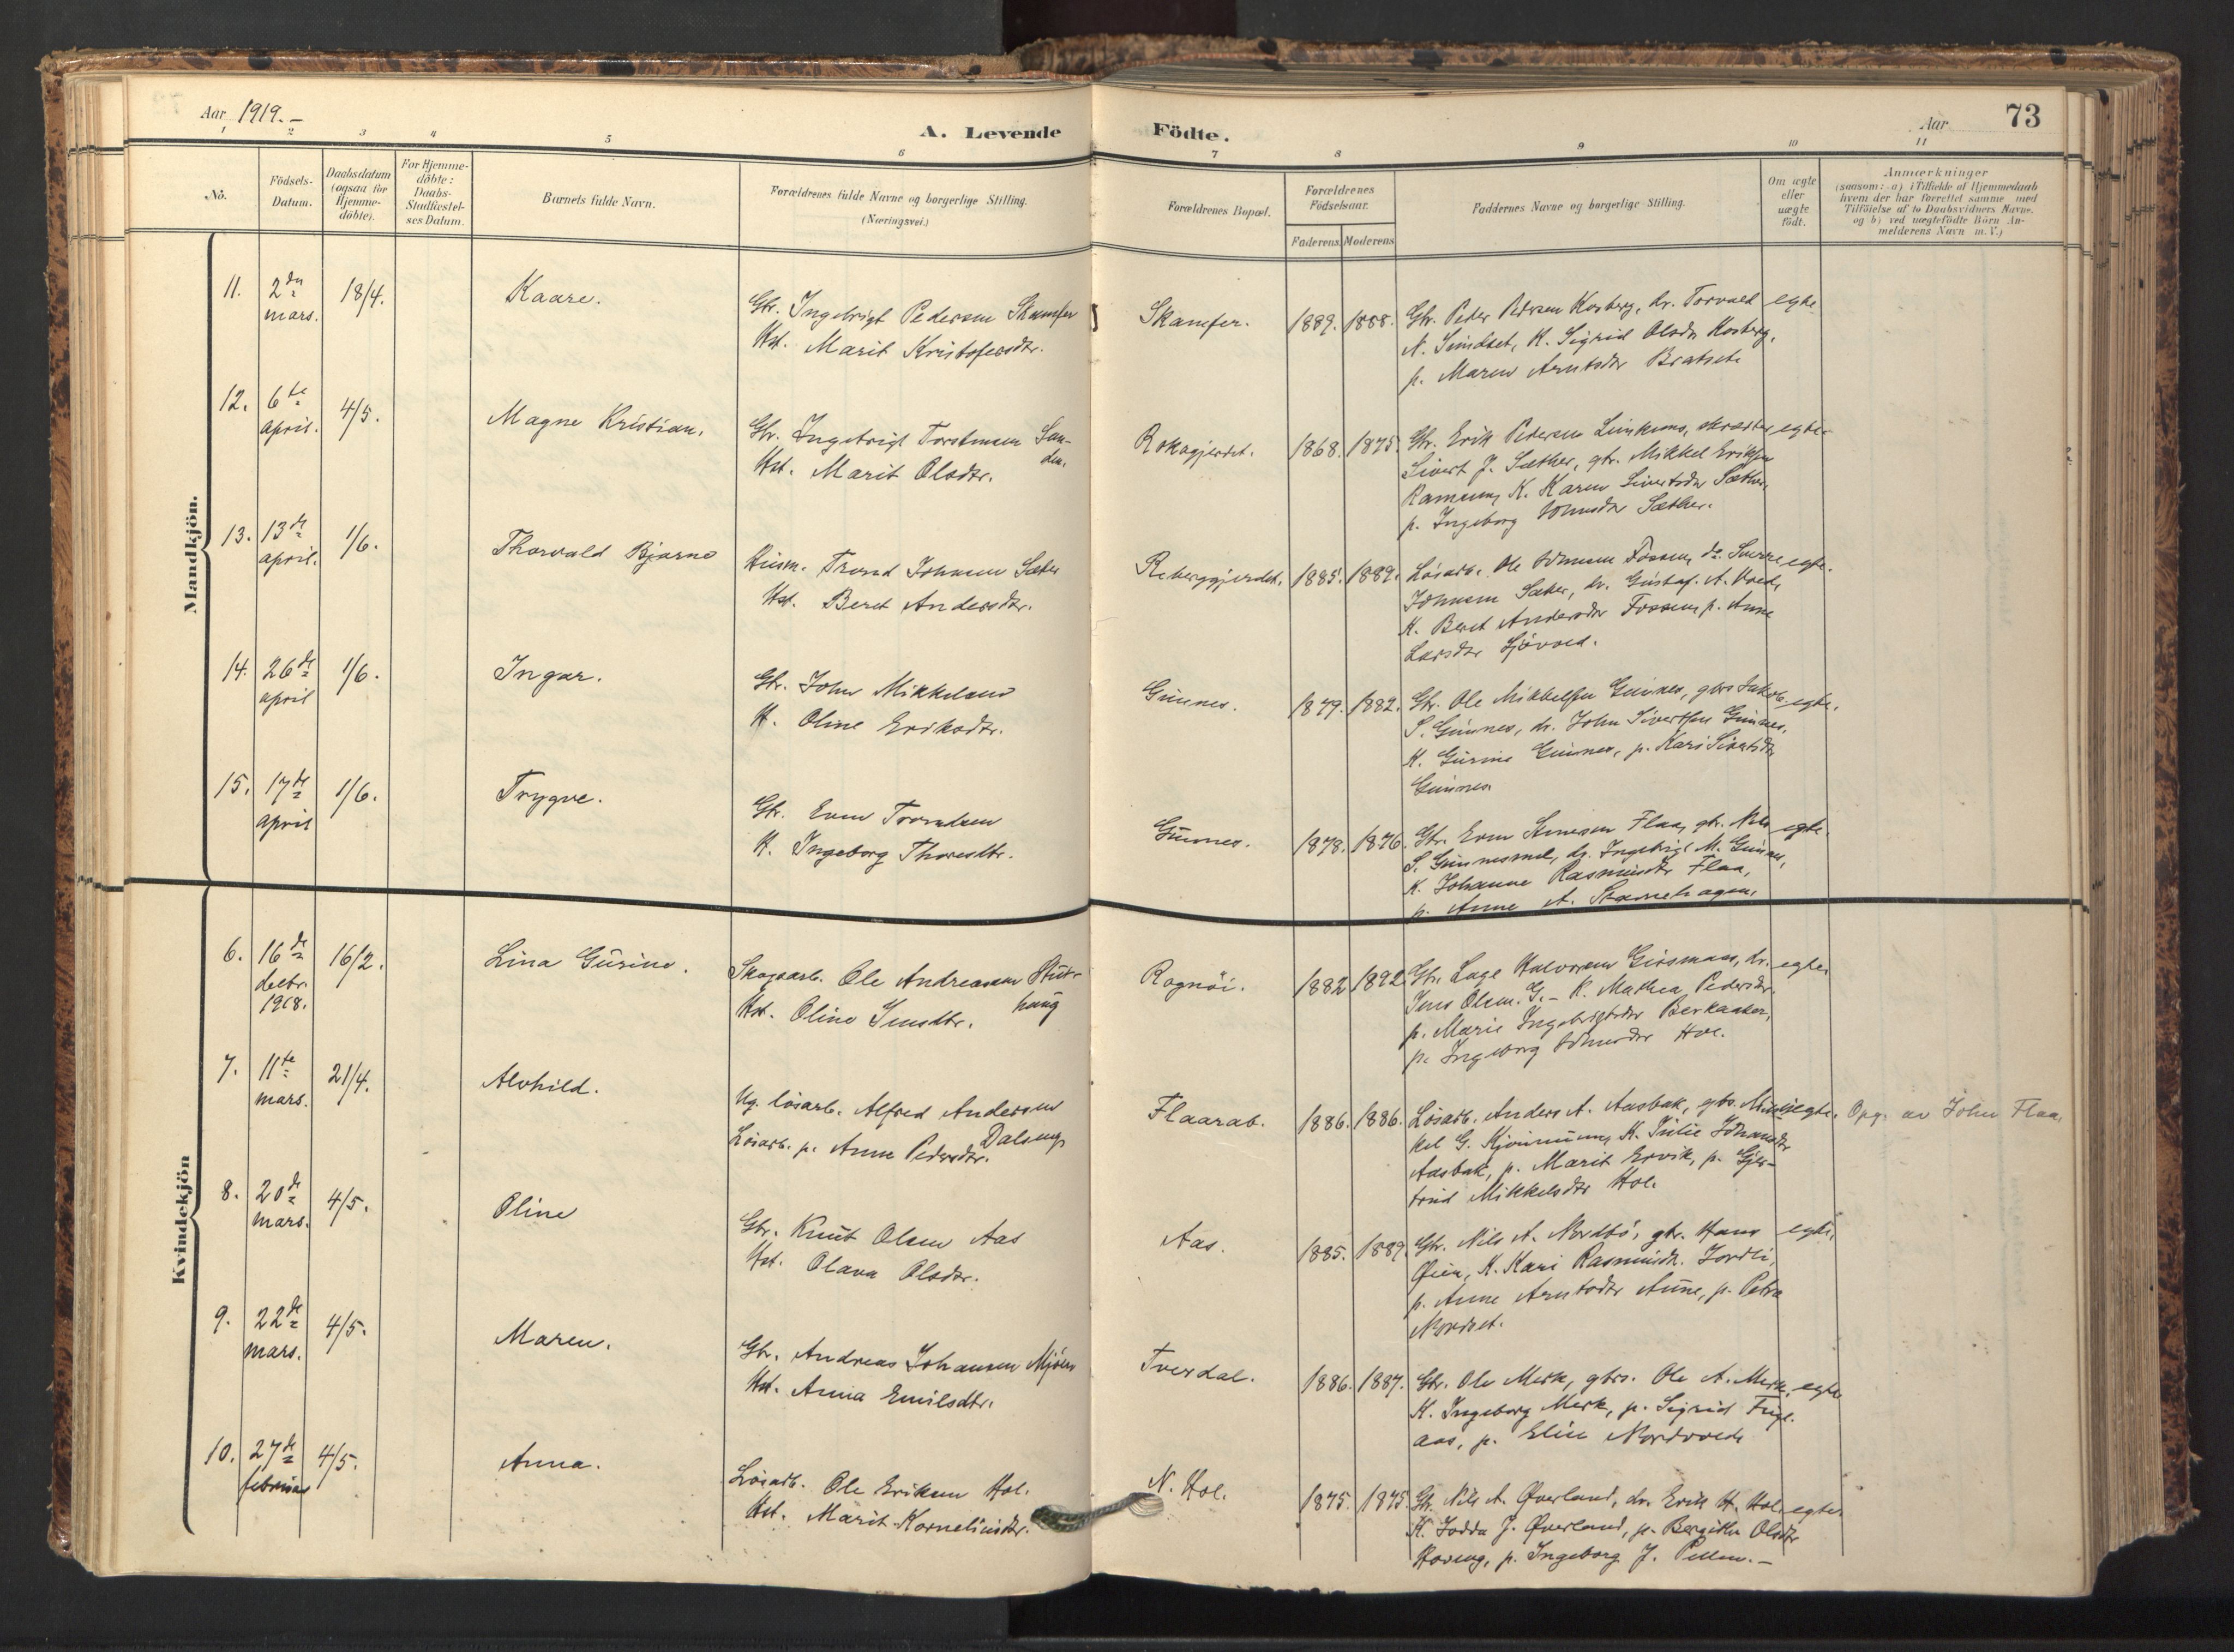 Aar 1919. –
A. Levende Födte.
Aar
73
1 2 3 4 5 6 7 8 9 10 11
No.
Födsels-
Datum.
Daabsdatum
(ogsaa for
Hjemme-
döbte).
For Hjemme-
döbte:
Daabs-
Stadfæstel-
ses Datum.
Barnets fulde Navn.
Forældrenes fulde Navne og borgerlige Stilling.
(Næringsvei.)
Forældrenes Bopæl.
Forældrenes
Födselsaar.
Faderens. Moderens
Faddernes Navne og borgerlige Stilling.
Om ægte
eller
uægte
födt.
Anmærkninger
(saasom: a) i Tilfælde af Hjemmedaab
hvem der har forrettet samme med
Tilföielse af to Daabsvidners Navne,
og b) ved uægtefödte Börn An-
melderens Navn m. V.)
Mandkjön.
11. 2den mars. 18/4. Kaare.
Gbr. Ingebrigt Pedersen Skamfer
Hst. Marit Kristofersdtr.
Skamfer. 1889. 1888.
Gbr. Peder Pedersen Kosberg, dr. Torvald egte
N. Simdset, K. Sigrid Olsdtr Kosberg,
p. Maren Arntsdtr Bratset.
12. 6te april. 4/5. Magne Kristian.
Gbr. Ingebrigt Torstensen San-
den.
Hst. Marit Olsdtr.
Rokagjerdet. 1868. 1875.
Gbr. Erik Pedersen, egte.
Sivert J. Sæther, gbr. Mikkel Eriksen
K. Karen Sivertsdtr Sæther,
p. Ingeborg Johnsdtr Sæther.
13. 13de april. 1/6. Thorvald Bjarne
Husm. Trond Johnsen Sæter
Hst. Beret Andersdtr.
Reberggjerdet. 1885. 1889.
Løsarb. Ole Johnsen Fossem, do. Sverre egte.
Johnsen Sæter, dr. Gustaf. A. Hoed,
K. Beret Andersdtr Fossem, p. Anne
Larsdtr
14. 26de april 1/6. Ingar.
Gbr. John Mikkelsen
H. Oline Eriksdtr.
Gunnes. 1879. 1882.
Gbr. Ole Mikkelsen Gunnes, gbrs Jakob egte.
S. Gunnes, dr. John Sivertsen Gunnes,
K. Gurine Gunnes, p. Kari Sivertsdtr
Gunnes
15. 17de april 1/6. Trygve.
Gbr. Even Trondsen
H. Ingeborg Thoresdtr.
Gunnes. 1878. 1876.
Gbr. Even Arnesen Flaa, gbr. Nils egte.
S. Gunnesmel, dr. Ingebrigt M. Gunnes,
K. Johanne Rasmusdtr Flaa,
p. Anne A. Skamehagen.
Kvindekjön
6. 16de decbr. 1918. 16/2. Lina Gurine.
Skogsarb. Ole Andreassen Stut-
haug
Hst. Oline Jensdtr.
Rognöi. 1882 1892.
Gbr. Lage Halvorsen Gisnaas, dr. egte.
Jens Olsen. G. – K. Mathea Pedersdtr.
p. Marie Ingebrigtsdtr Berkaaken,
p. Ingeborg Johnsdtr Hoe.
7. 11te mars. 21/4. Alvhild.
Ug. løsarb. Alfred Andersen
Dalseng
Løsarb. p. Anne Pedersdtr.
Flaarab. 1886. 1886.
Løsarb. Anders A. Aasbak, gbs. Mik- egte. Opg. av John Flaa.
kel G. Kjönnum, K. Julie Johansdtr
Aasbak, p. Marit Ervik, p. Gjer-
trud Mikkelsdtr Hol.
8. 20de mars. 4/5. Oline
Gbr. Knut Olsen Aas
Hst. Olava Olsdtr.
Aas. 1885. 1889.
Gbr. Nils A. Nordbö, gbr. Hans egte.
Øien, K. Kari Rasmusdtr. Jordli,
p. Anne Arntsdtr Aune, p. Petra
Nordset.
9. 22de mars. 4/5. Maren.
Gbr. Andreas Johansen Mjöen
Hst. Anna Emilsdtr.
Tverdal. 1886. 1887.
Gbr. Ole Merk, gbrs. Ole A. Merk, egte
K. Ingeborg Merk, p. Sigrid Fugl-
aas, p. Elin Nordvold
10. 27de februar 4/5. Anna.
Løsarb. Ole Eriksen Hol.
Hst. Marit Korneliusdtr.
N. Hol. 1875. 1875.
Gbr. Nils A. Øverland, dr. Erik H. Hol egte.
K. Jodda J. Øverland, p. Bergitte Olsdtr
p. Ingeborg J. –